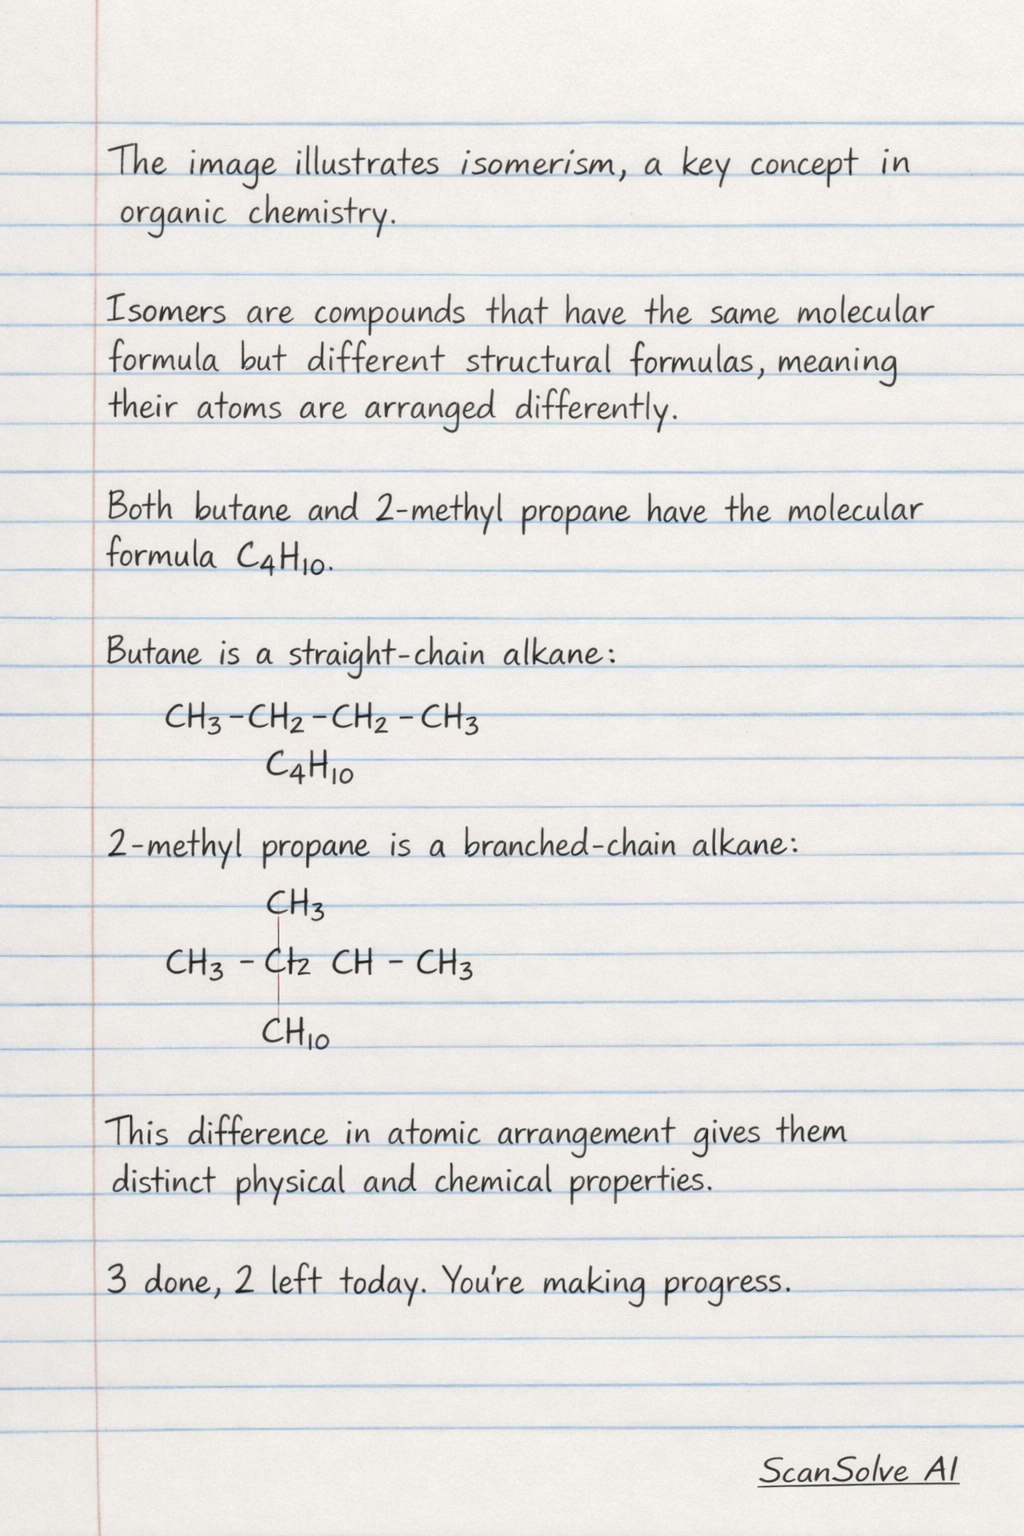 The image illustrates isomerism, a key concept in
organic chemistry.
Isomers are compounds that have the same molecular
formula but different structural formulas, meaning
their atoms are arranged differently.
Both butane and 2-methyl propane have the molecular
formula C₄H₁₀.
Butane is a straight-chain alkane:
CH₃-CH₂-CH₂-CH₃
C₄H₁₀
2-methyl propane is a branched-chain alkane:
CH₃
CH₃ - CH₂ CH - CH₃
CH₁₀
This difference in atomic arrangement gives them
distinct physical and chemical properties.
3 done, 2 left today. You're making progress.
ScanSolve AI